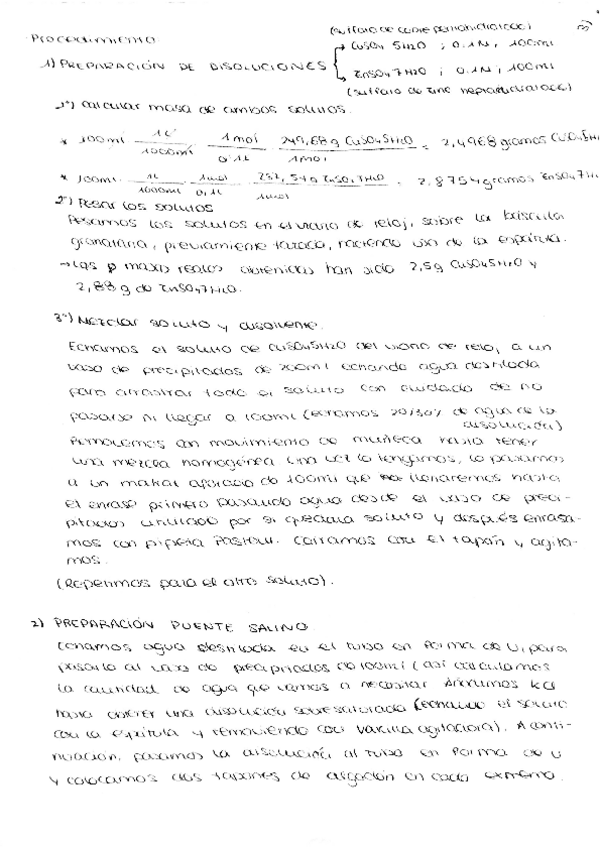 (sulfato de cobre pentahidratado)
3)
Procedimiento
1) PREPARACIÓN DE DISOLUCIONES
→ CuSO4 5H2O ; 0.1N, 100ml
→ ZnSO4 7H2O ; 0.1N, 100ml
(sulfato de zinc heptahidratado)
1º) Calcular masa de ambos solutos.
* 100ml · 1L / 1000ml · 1mol / 0.1L · 249,68g CuSO4 5H2O / 1mol = 2,4968 gramos CuSO4 5H
* 100ml · 1L / 1000ml · 1mol / 0,1L · 287,54g ZnSO4 7H2O / 1mol = 2.8754 gramos ZnSO4 7H
2º) Pesar los solutos
Pesamos los solutos en el vidrio de reloj, sobre la báscula
granataria, previamente tarado, haciendo uso de la espátula.
→ Las masas reales obtenidas han sido 2,5g CuSO4 5H2O y
2,88g de ZnSO4 7H2O.
3º) Mezclar soluto y disolvente.
Echamos el soluto de CuSO4 5H2O del vidrio de reloj a un
vaso de precipitados de 200ml echando agua destilada
para arrastrar todo el soluto con cuidado de no
pasarse ni llegar a 100ml (echamos 20/30% de agua de la
disolución)
Removemos con movimiento de muñeca hasta tener
una mezcla homogénea. Una vez la tengamos, lo pasamos
a un matraz aforado de 100ml que llenaremos hasta
el enrase primero pasando agua desde el vaso de preci-
pitados utilizado por si quedara soluto y después enrasa-
mos con pipeta Pasteur. Cerramos con el tapón y agita-
mos.
(Repetimos para el otro soluto).
2) PREPARACIÓN PUENTE SALINO
Echamos agua destilada en el tubo en forma de U, para
pasarlo al vaso de precipitados de 100ml (así calculamos
la cantidad de agua que vamos a necesitar. Añadimos KCl
hasta obtener una disolución sobresaturada (echando el soluto
con la espátula y removiendo con varilla agitadora). A conti-
nuación, pasamos la disolución al tubo en forma de U
y colocamos dos tapones de algodón en cada extremo.